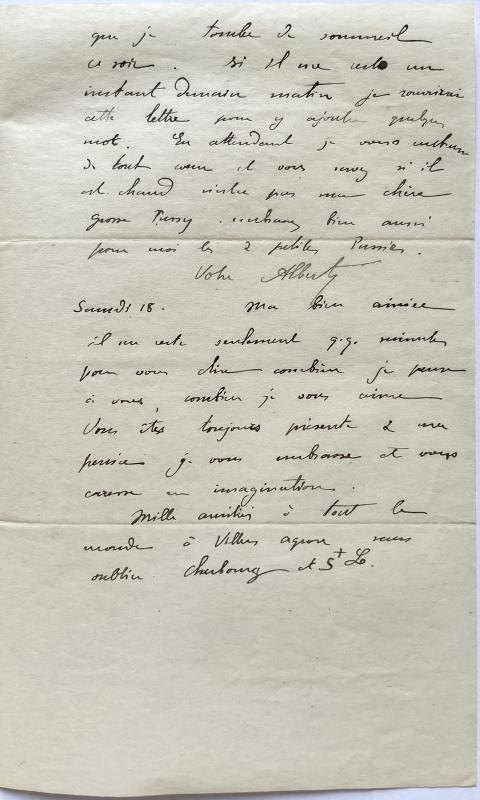 que je tombe de sommeil
ce soir. Si il me reste un
instant demain matin je rouvrirai
cette lettre pour y ajouter quelques
mot. En attendant je vous embrasse
de tout cœur et vous savez si il
est chaud n'est-ce pas ma chère
grosse Pussy. embrassez bien aussi
pour moi les 2 petites Pussies.
Votre Albert
Samedi 18. Ma bien aimée
il me reste seulement q.q. minutes
pour vous dire combien je pense
à vous, combien je vous aime
Vous êtes toujours présente à ma
pensée je vous embrasse et vous
caresse en imagination.
Mille amitiés à tout le
monde à Villers agron sans
oublier Cherbourg et St L.